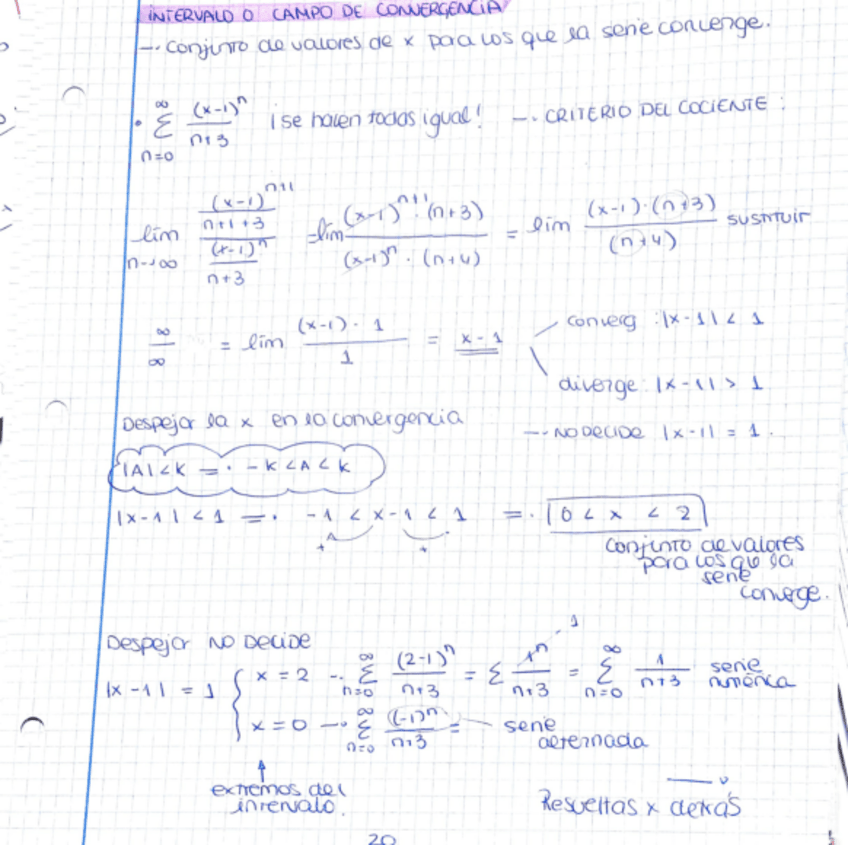 INTERVALO O CAMPO DE CONVERGENCIA
→ Conjunto de valores de x para los que la serie converge.
• ∑_{n=0}^{∞} (x-1)^n / (n+3) ¡se hacen todas igual! → CRITERIO DEL COCIENTE:
lim_{n→∞} ((x-1)^{n+1} / (n+1+3)) / ((x-1)^n / (n+3)) = lim ((x-1)^{n+1} · (n+3)) / ((x-1)^n · (n+4)) = lim ((x-1)·(n+3)) / (n+4) sustituir
∞/∞ = lim ((x-1)·1) / 1 = x-1
converg: |x-1| < 1
diverge: |x-1| > 1
→ NO DECIDE |x-1| = 1.
Despejar la x en la convergencia
|A| < K => -K < A < K
|x-1| < 1 => -1 < x-1 < 1 => 0 < x < 2
+ +
Conjunto de valores
para los que la
serie
converge.
Despejar NO DECIDE
|x-1| = 1 { x = 2 → ∑_{n=0}^{∞} (2-1)^n / (n+3) = ∑ 1^n / (n+3) = ∑_{n=0}^{∞} 1 / (n+3) serie numérica
1
x = 0 → ∑_{n=0}^{∞} (-1)^n / (n+3) = serie alternada
extremos del
intervalo.
Resueltas x detrás
20